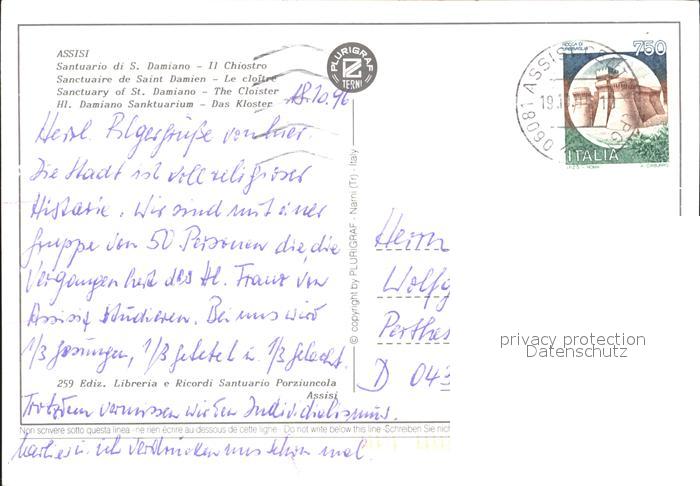 ASSISI
Santuario di S. Damiano - Il Chiostro
Sanctuaire de Saint Damien - Le cloître
Sanctuary of St. Damiano - The Cloister
Hl. Damiano Sanktuarium - Das Kloster
18.10.96
Herzl. Pilgergrüße von hier.
Die Stadt ist voll religiöser
Historie. Wir sind mit einer
Gruppe von 50 Personen die die
Vergangenheit des Hl. Franz von
Assisi studieren. Bei uns wird
1/3 gesungen, 1/3 gebetet u. 1/3 gelacht.
259 Ediz. Libreria e Ricordi Santuario Porziuncola
Assisi
Trotzdem vermissen wir den Individialismus.
Non scrivere sotto questa linea - ne rien écrire au-dessous de cette ligne - Do not write below this line - Schreiben Sie nicht
u. ich verdrücken uns schon mal.
PLURIGRAF
TERNI
© copyright by PLURIGRAF - Narni (Tr) - Italy
ROCCA DI
750
ITALIA
06081 ASSISI
19.10
Herrn
Wolfg
Perthes
D 043
privacy protection
Datenschutz